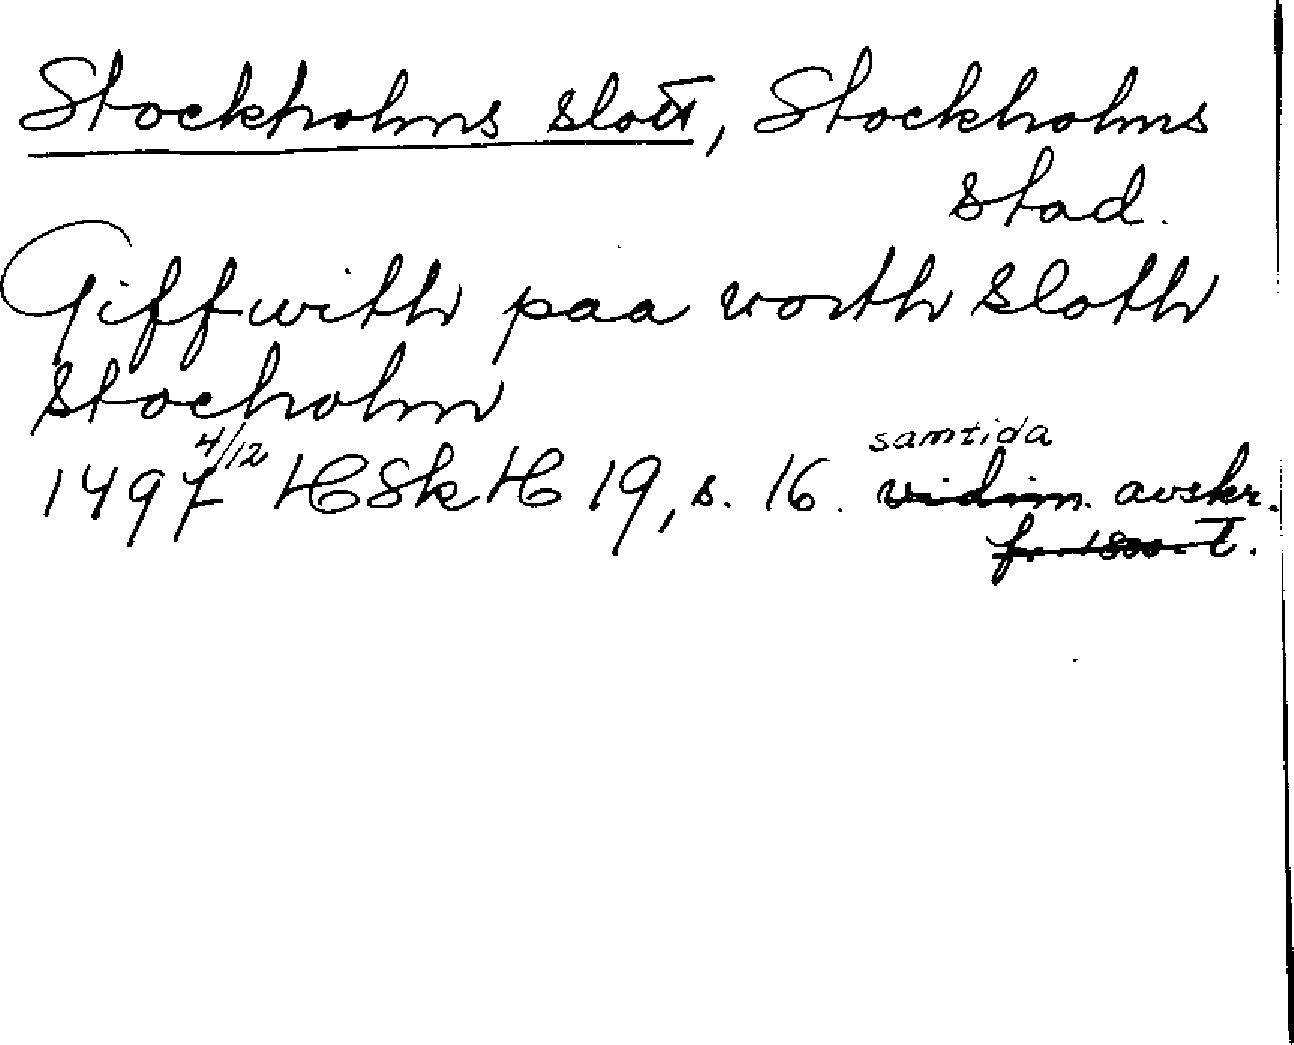 Stockholms slott, Stockholms
stad.
Giffwith paa worth sloth
stocholm
1497 4/12 HSkH 19, s. 16. samtida vidim. avskr.
fr. 1800-t.